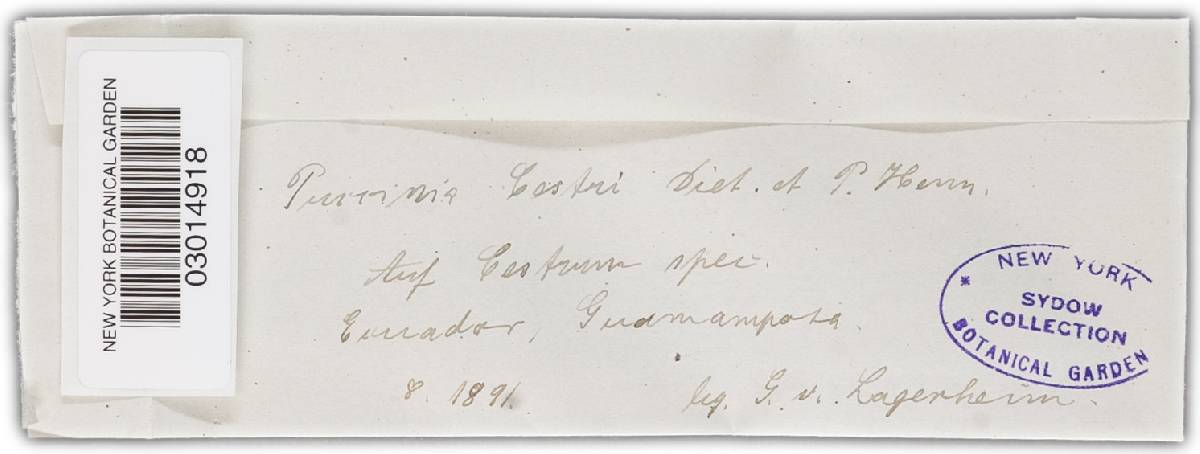 NEW YORK BOTANICAL GARDEN
03014918
Puccinia Cestri Diet. et P. Henn.
Auf Cestrum spec.
Ecuador, Guamampata.
8. 1891.
leg. G. v. Lagerheim.
* NEW YORK
SYDOW
COLLECTION
BOTANICAL GARDEN